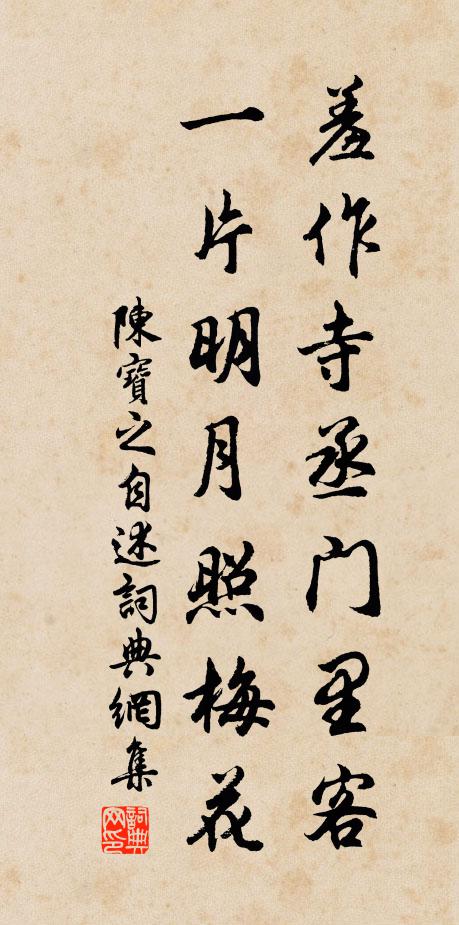 羞作寺丞门里客
一片明月照梅花
陳寶之自述詞典網集
詞典网印